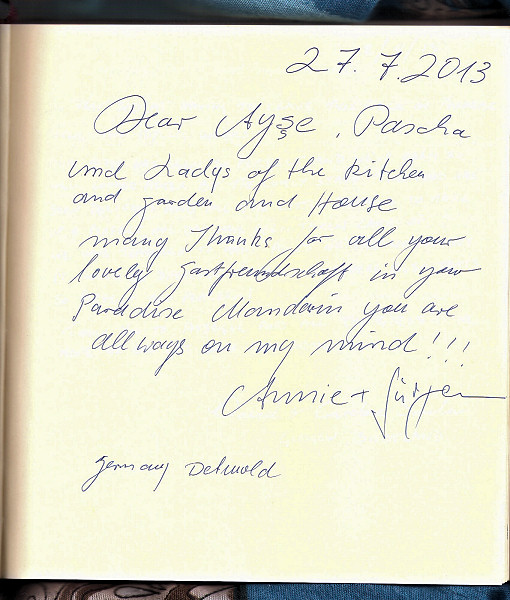 27.7.2013
Dear Ayşe, Pascha
und Ladys of the kitchen
and garden and House
many Thanks for all your
lovely Gastfreundschaft in your
Paradise Mandarin you are
allways on my mind!!!
Annie + Jürgen
Germany Detmold